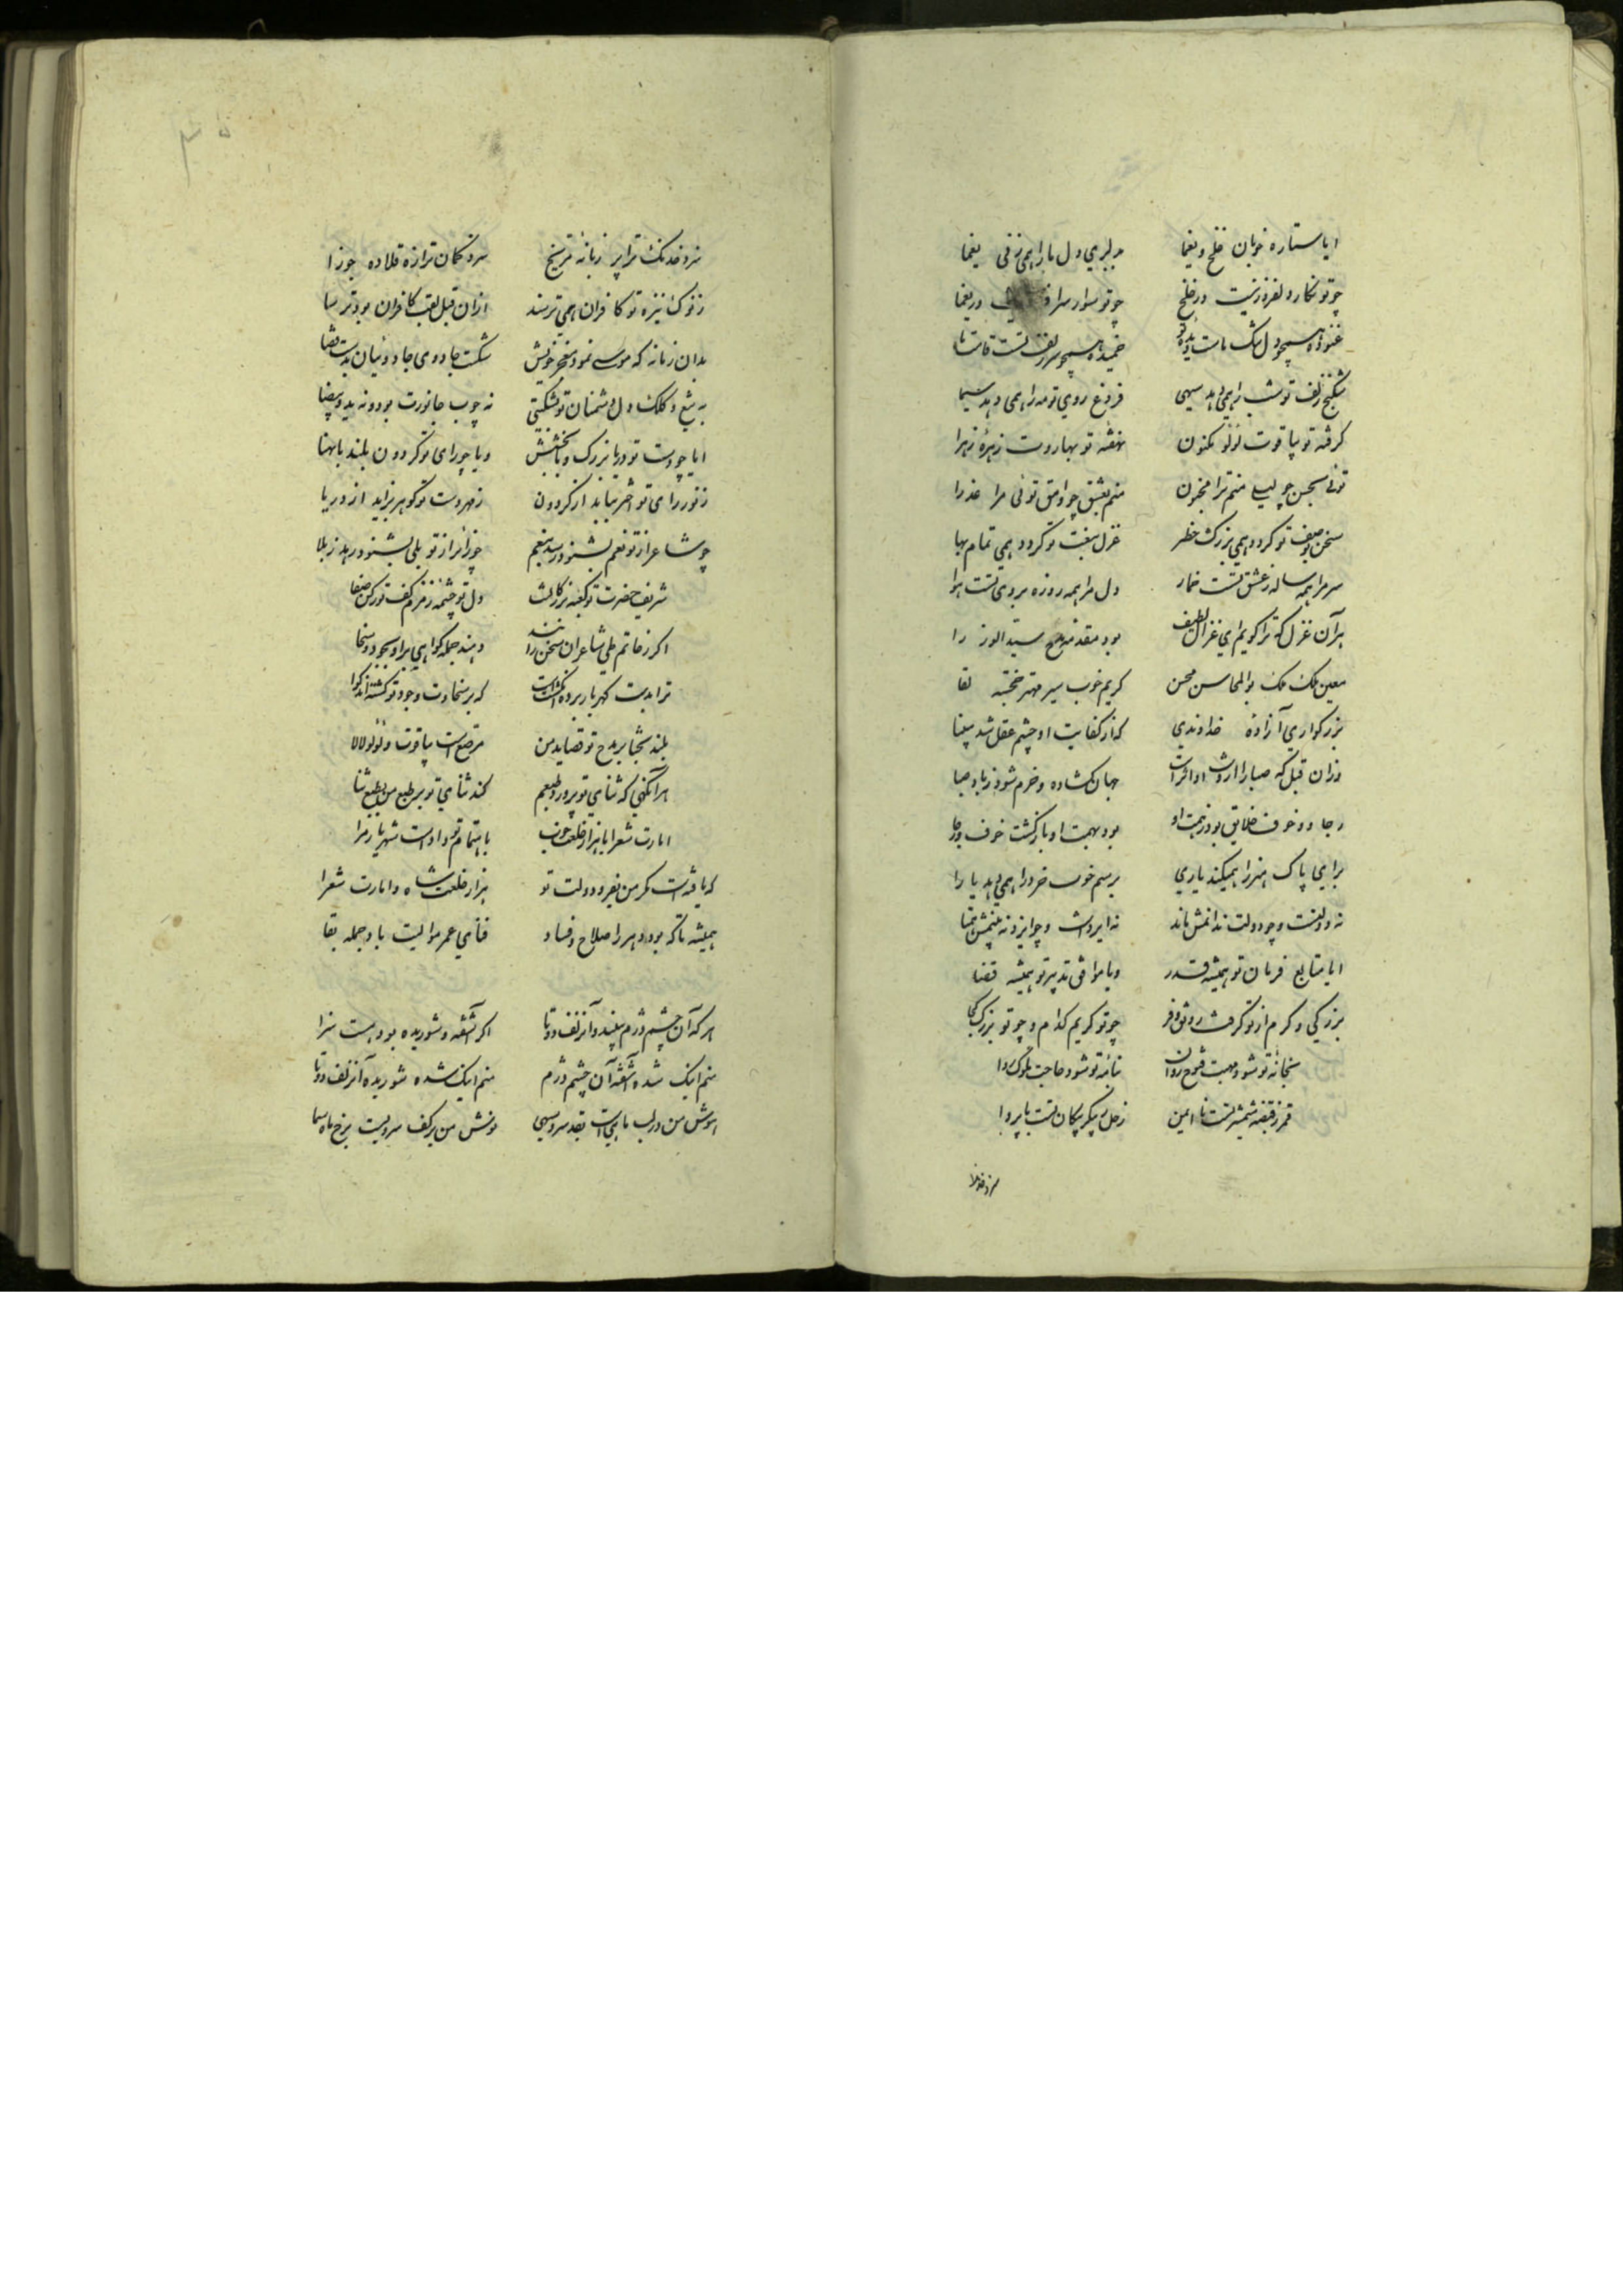 ایا ستاره خوبان خلخ و یغما بدلبری دل ما را همی زنی یغما
چو تو نگار دلفروز نیست در خلخ چو تو سوار سرافراز نیست در یغما
غنوده همچو دل تنگ ماست دیده تو خمیده همچو سر زلف تست قامت ما
شکنج زلف تو شب را همی دهد سیهی فروغ روی تو مه را همی دهد سیما
گرفته تو بیاقوت لؤلؤ مکنون نهفته تو بهاروت زهره زهرا
توئی بحسن چو لیلی منم ترا مجنون منم بعشق چو وامق توئی مرا عذرا
سخن بوصف تو گردد همی بزرگ خطر غزل بنعت تو گردد همی تمام بها
سر مرا همه ساله ز عشق تست خمار دل مرا همه روزه بروی تست هوا
هر آن غزل که ترا گویم ای غزال لطیف بود مقدمه مدح سید الوزرا
معین ملک ملک بوالمحاسن محسن کریم خوب سیر مهتر خجسته لقا
بزرگواری آزاده خداوندی که از کفایت او چشم عقل شد بینا
وزان قبل که صبا را اثر
جهان گشاده و خرم شود ز باد صبا
رجا و خوف خلایق بود ز همت او بود بهمت او بازگشت خوف و رجا
برای پاک هنر را همیکند یاری برسم خوب خرد را همی دهد یارا
نه دولتست و چو دولت ندانمش مانند نه ایزدست و چو ایزد نه بینمش همتا
ایا متابع فرمان تو همیشه قدر ویا موافق تدبیر تو همیشه قضا
بزرگی و کرم از تو گرفت رونق و فر چو تو کریم کدام و چو تو بزرگ کجا
بخانه تو شود همت فتوح روان بنامه تو شود حاجت ملوک روا
قمر ز قبضه شمشیر تست نا ایمن زحل ز پیکر پیکان تست با پروا
سزد خدنک
سزد خدنک ترا پر زبانه مریخ سزد کمان ترا زه قلاده جوزا
ز نوک نیزه تو کافران همی ترسند ازان قبل لقب کافران بود ترسا
بدان زمانه که موسی نمود معجز خویش شکست جادوی جادوئیان بدست عصا
به تیغ و کلک دل دشمنان تو بشکستی نه چوب جانورت بود و نه ید بیضا
ایا چو دست تو دریا بزرگ و بابخشش ویا چو رای تو گردون بلند بابهنا
ز نور رای تو اختر بتابد از گردون ز مهر دست تو گوهر بزاید از دریا
چو شاعر از تو نعم بشنود رسد بنعم چو زائر از تو بلی بشنود رهد ز بلا
شریف حضرت تو کعبه بزرگانست دل تو چشمه زمزم کف تو رکن صفا
اگر ز حاتم طی شاعران سخن رانند دهند جمله گواهی برو بجود و سخا
ترا بدست گهربار برده انگشتست که بر سخاوت و جود تو گشته اند گوا
بلند بختا بر مدح تو قصاید من مرصع است بیاقوت و لؤلؤ لالا
هر آنگهی که ثنای تو پرورد طبعم کند ثنای تو بر طبع من بطبع ثنا
امارت شعرا با هزار خلعت خوب باهتمام تو دادست شهریار مرا
که یافتست مگر من بفر دولت تو هزار خلعت شاه و امارت شعرا
همیشه تا که بود دهر را صلاح و فساد فنای عمر موالیت باد جمله بقا
هر که آن چشم دژم بیند و آن زلف دوتا اگر آشفته و شوریده بود هست سزا
منم اینک شده آشفته آن چشم دژم منم اینک شده شوریده آن زلف دوتا
نوش من در لب ماهی است بقد سرو سهی نوش من بر کف سرویست برخ ماه سما